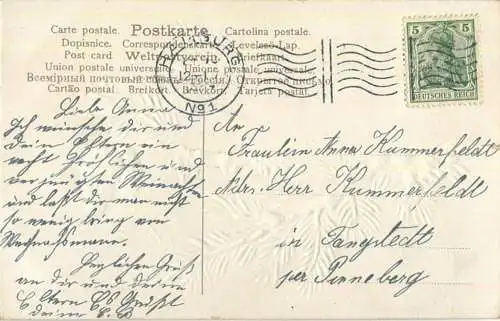 Carte postale. Postkarte Cartolina postale.
Dopisnice. Correspondenzkarte. Levelező-Lap.
Post card Weltpostverein. Briefkaart.
Union postale universelle. Unione postale universale.
Всемірный почтовый союзъ. Открытое письмо.
Cartão postal. Brevkort. Brevkort. Tarjeta postal.
HAMBURG
No 1
5 5
DEUTSCHES REICH
Liebe Anna
Ich wünsche dir und
dein Eltern ein
recht fröhlichen und
vergnügten Weinacht
und laßt dir man nicht
so wenig bring von
Weihnachsmann.
Herzlichen Gruß
an dir und deine
Eltern Es Grüßt
deine
An
Fräulein Anna Kummerfeldt
Adrs. Herr Kummerfeldt
in Tangstedt
per Pinneberg